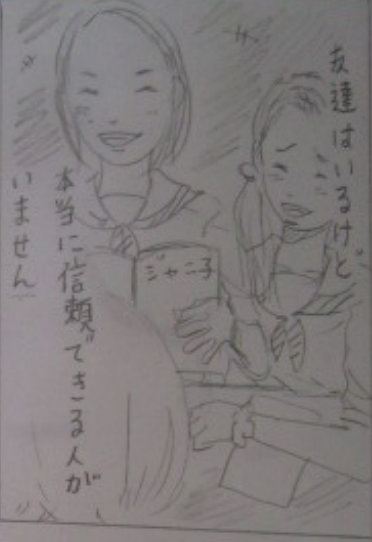 友達はいるけど
本当に信頼できる人が
いません
ジャニ子